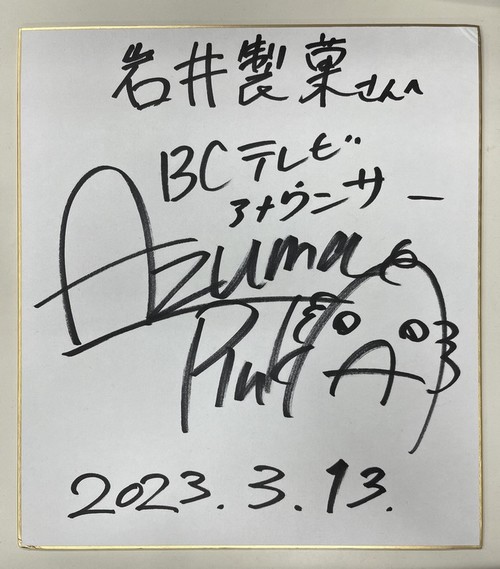 岩井製菓さんへ
ABCテレビ
アナウンサー
Azuma
2023.3.13.